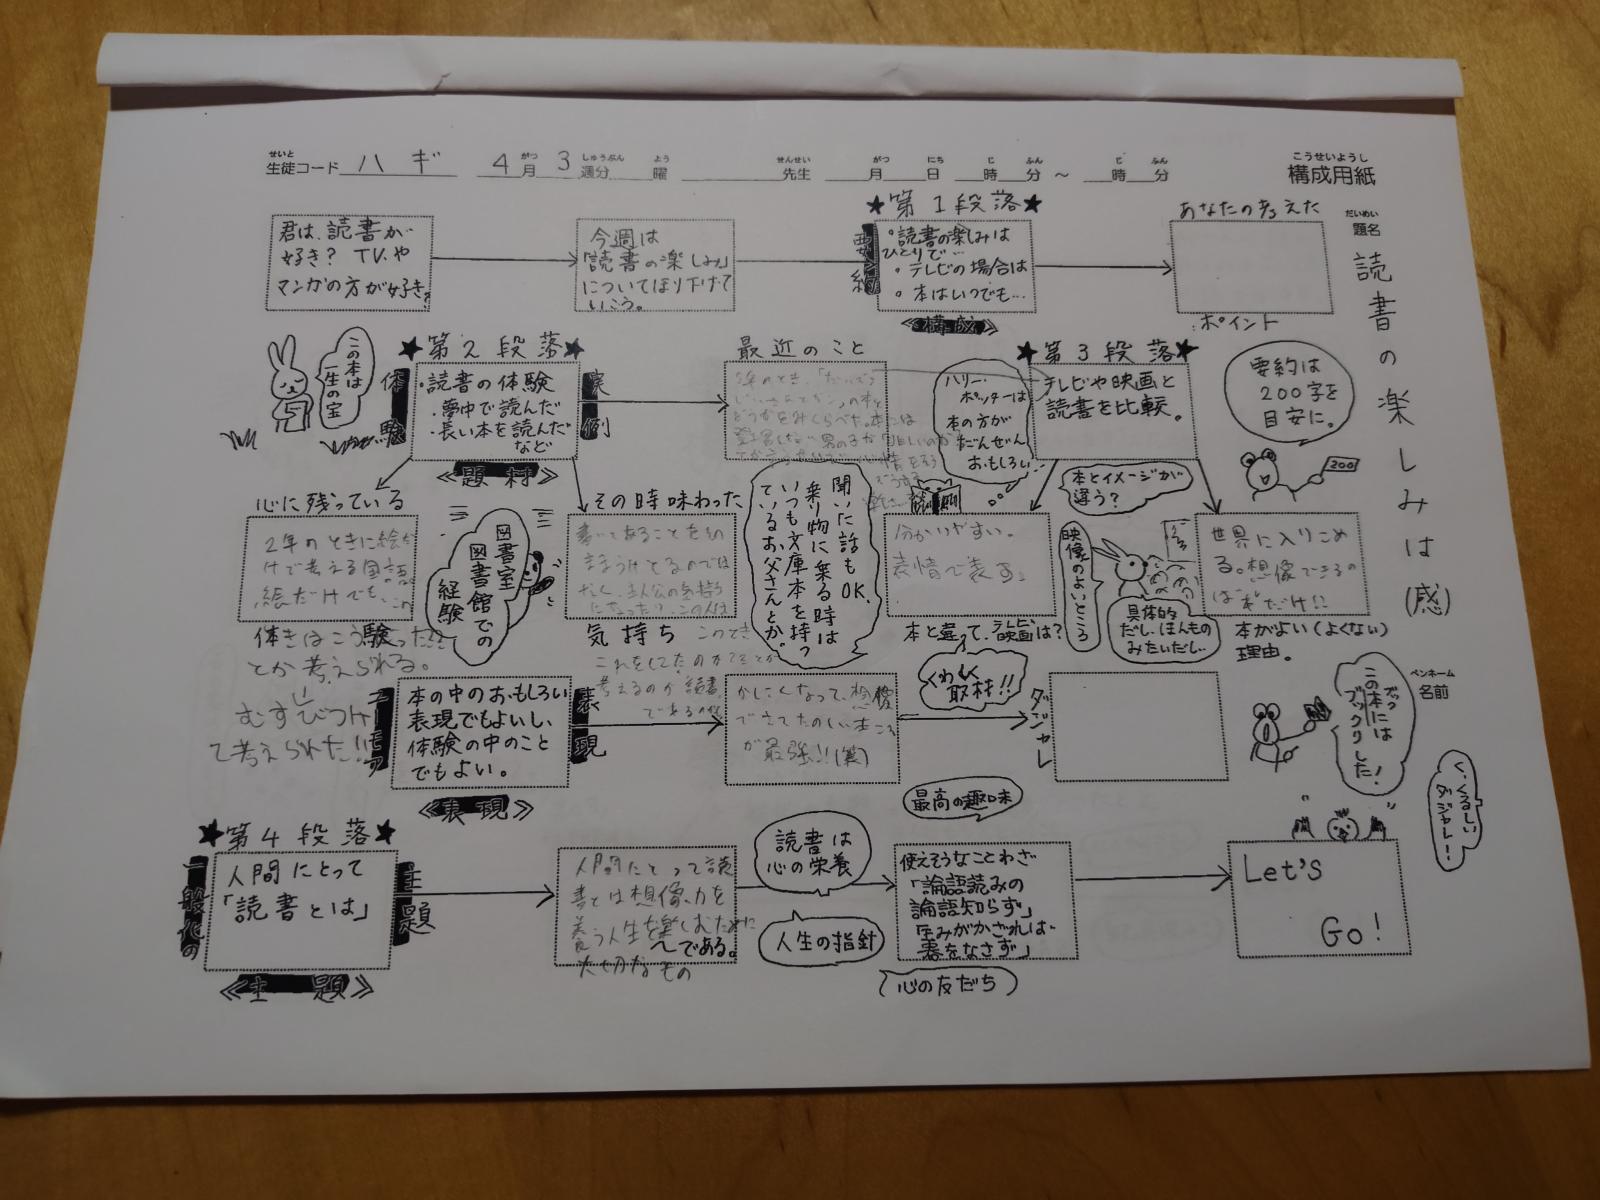 せいと
生徒コード ハギ 4月 3週分 曜 先生 月 日 時 分 ～ 時 分
がつ しゅうぶん よう せんせい がつ にち じ ふん じ ふん
こうせいようし
構成用紙
だいめい
題名
読書の楽しみは(感)
君は、読書が
好き？ TVや
マンガの方が好き？
今週は
「読書の楽しみ」
についてほり下げて
いこう。
★第1段落★
要約
・読書の楽しみは
ひとりで…
・テレビの場合は
・本はいつでも…
《構成》
あなたの考えた
ポイント
要約は
200字を
目安に。
200
この本は
一生の宝
★第2段落★
体験
・読書の体験
・夢中で読んだ
・長い本を読んだ
など
実例
《題材》
最近のこと
ハリー・
ポッターは
本の方が
だんぜん
おもしろい
★第3段落★
テレビや映画と
読書を比較。
本とイメージが
違う？
心に残っている
2年のときに絵だ
けで考える国語
絵だけでも、
体きはこう験った
とか考えられる。
むすびつけ
て考えられた!!
図書室
図書館での
経験
その時味わった
書いてあることをその
ままうけとるのでは
なく、主人公の気持ち
気持ち
これをしてたのか？とか
考えるのが読書
聞いた話もOK。
乗り物に乗る時は
いつも文庫本を持っ
ているお父さんとか。
分かりやすい。
表情で表す。
本と違って、映画は？
映像のよいところ
具体的
だし、ほんもの
みたいだし
世界に入りこめ
る。想像できるの
は"本"だけ!!
本がよい(よくない)
理由。
ペンネーム
名前
ユーモア
本の中のおもしろい
表現でもよいし、
体験の中のこと
でもよい。
表現
《表現》
かしこくなって、想像
できてたのしい本こそ
が最強!!(笑)
くわしく
取材!!
ダジャレ
この本には
ブッククした！
く、くるしい
ダジャレー！
★第4段落★
一般化の
人間にとって
「読書とは」
主題
《主題》
人間にとって読
書とは想像力を
養う人生を楽しむために
～である。
大切なもの
読書は
心の栄養
人生の指針
最高の趣味
使えそうなことわざ
「論語読みの
論語知らず」
「玉みがかざれば
器をなさず」
(心の友だち)
Let's
Go!